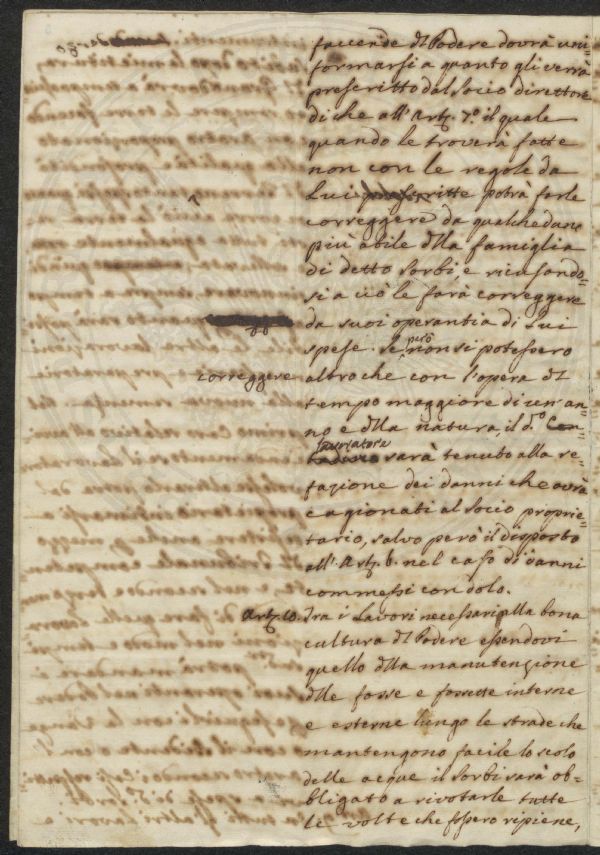 faccende dl Podere dovrà uni-
formarsi a quanto gli verrà
prescritto dal socio direttore
di che all'Art. 7.° il quale
quando le troverà fatte
non con le regole da
Lui prescritte potrà farle
correggere da qualcheduno
più abile dlla famiglia
di detto Sorbi, e ricusando-
si a ciò le farà correggere
da suoi operanti a di Lui
spese. Se però non si potessero
correggere altro che con l'opera dl
tempo maggiore di un'an-
no e dlla natura, il d.°
lavoratore sarà tenuto alla re-
fazione dei danni che avrà
cagionati al Socio proprie-
tario, salvo però il disposto
all'Art. 6. nel caso di danni
commessi con dolo.
Art. 10. Tra i Lavori necessari alla bona
cultura dl Podere essendovi
quello dlla manutenzione
dlle fosse e fossette interne
e esterne lungo le strade che
mantengono facile lo scolo
delle acque il Sorbi sarà ob-
bligato a rivotarle tutte
le volte che fossero ripiene,